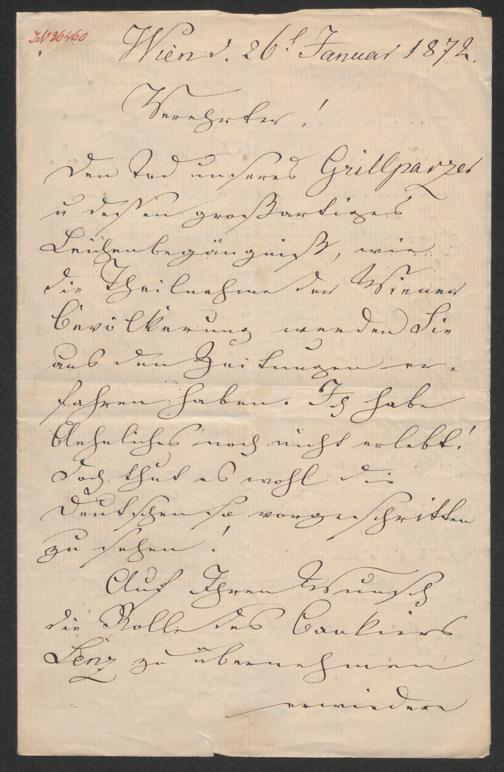 IN 36460
Wien d. 26t Januar 1872.
Verehrter!
Den Tod unseres Grillparzer
u dessen großartiges
Leichenbegängniß, wie
die Theilnahme der Wiener
Bevölkerung werden Sie
aus den Zeitungen er-
fahren haben. Ich habe
Aehnliches noch nicht erlebt!
Doch thut es wohl die
Deutschen so vorgeschritten
zu sehen!
Auf Ihren Wunsch
die Rolle des Bankiers
Lenz zu übernehmen
erwiedere